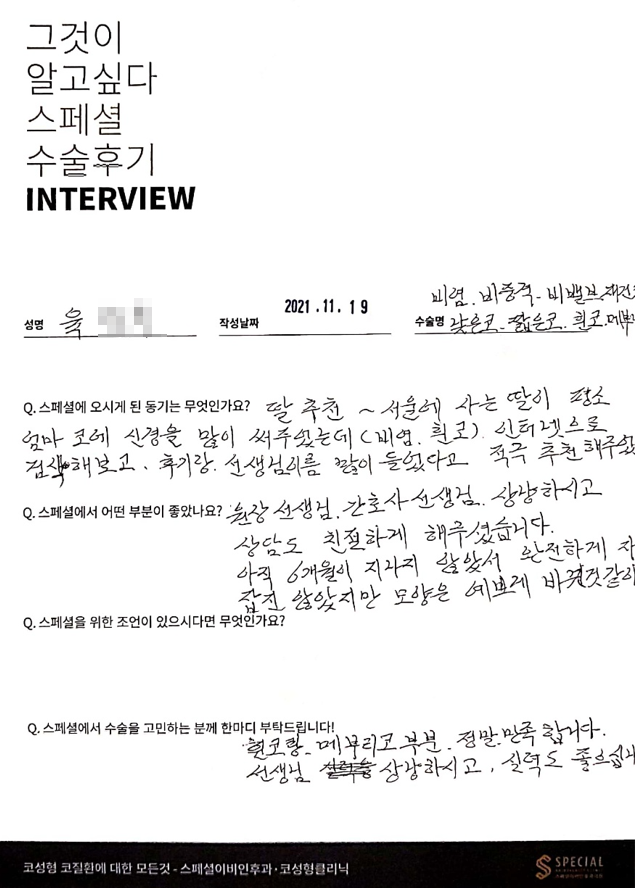 그것이
알고싶다
스페셜
수술후기
INTERVIEW
비염. 비중격 - 비밸브.재건
성명 육 작성날짜 2021.11.19 수술명 낮은코 - 짧은코. 휜코.메부
Q. 스페셜에 오시게 된 동기는 무엇인가요? 딸 추천 ~ 서울에 사는 딸이 평소
엄마 코에 신경을 많이 써주었는데 (비염. 휜코). 인터넷으로
검색해보고, 후기랑. 선생님이름 많이 들었다고 적극 추천해주었
Q. 스페셜에서 어떤 부분이 좋았나요? 원장 선생님. 간호사 선생님. 상냥하시고
상담도 친절하게 해주셨습니다.
아직 6개월이 지나지 않았서 완전하게 자
잡진 않았지만 모양은 예쁘게 바뀐것같아
Q. 스페셜을 위한 조언이 있으시다면 무엇인가요?
Q. 스페셜에서 수술을 고민하는 분께 한마디 부탁드립니다!
휜코랑. 메부리코 부분. 정말 만족합니다.
선생님 상냥하시고, 실력도 좋으십니
코성형 코질환에 대한 모든것 - 스페셜이비인후과·코성형클리닉
SPECIAL